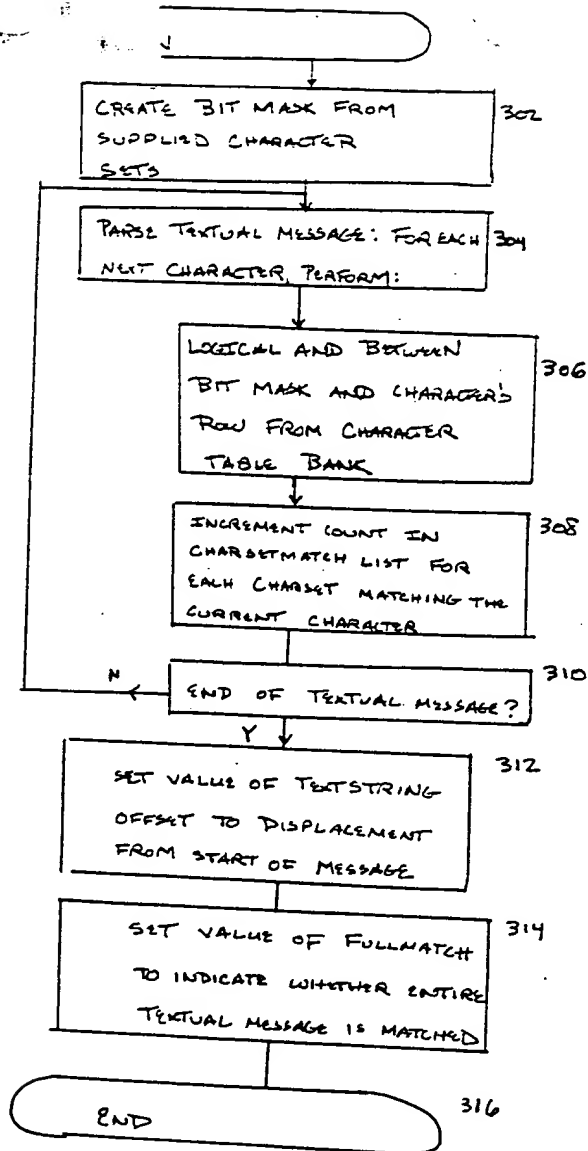 CREATE BIT MASK FROM
SUPPLIED CHARACTER
SETS
302
PARSE TEXTUAL MESSAGE: FOR EACH
NEXT CHARACTER, PERFORM:
304
LOGICAL AND BETWEEN
BIT MASK AND CHARACTER'S
ROW FROM CHARACTER
TABLE BANK
306
INCREMENT COUNT IN
CHARSETMATCH LIST FOR
EACH CHARSET MATCHING THE
CURRENT CHARACTER
308
N
END OF TEXTUAL MESSAGE?
310
Y
SET VALUE OF TEXTSTRING
OFFSET TO DISPLACEMENT
FROM START OF MESSAGE
312
SET VALUE OF FULLMATCH
TO INDICATE WHETHER ENTIRE
TEXTUAL MESSAGE IS MATCHED
314
END
316